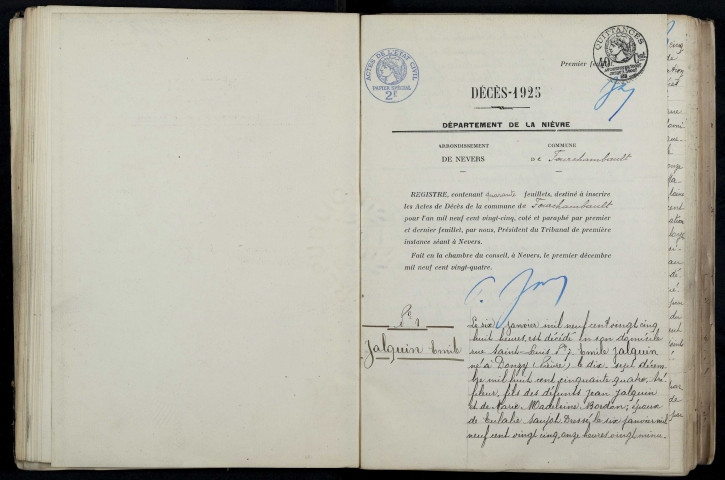 Premier feuillet.
ACTES DE L'ETAT CIVIL
PAPIER SPECIAL
2F
QUITTANCES
DÉCÈS-1925
DÉPARTEMENT DE LA NIÈVRE
ARRONDISSEMENT
DE NEVERS
COMMUNE
DE Fourchambault
REGISTRE, contenant quarante feuillets, destiné à inscrire
les Actes de Décès de la commune de Fourchambault
pour l'an mil neuf cent vingt-cinq, coté et paraphé par premier
et dernier feuillet, par nous, Président du Tribunal de première
instance séant à Nevers.
Fait en la chambre du conseil, à Nevers, le premier décembre
mil neuf cent vingt-quatre.
No 1
Jalquin Emile
Le six janvier mil neuf cent vingt cinq
huit heures, est décédé en son domicile
rue Saint-Louis No 7 Emile Jalquin
né à Donzy (Nièvre) le dix sept décem
bre mil huit cent cinquante quatre, tré
fileur, fils des défunts Jean Jalquin
et de Marie Madeleine Bordon; époux
de Eulalie Dressé le six janvier mil
neuf cent vingt cinq, onze heures vingt minu